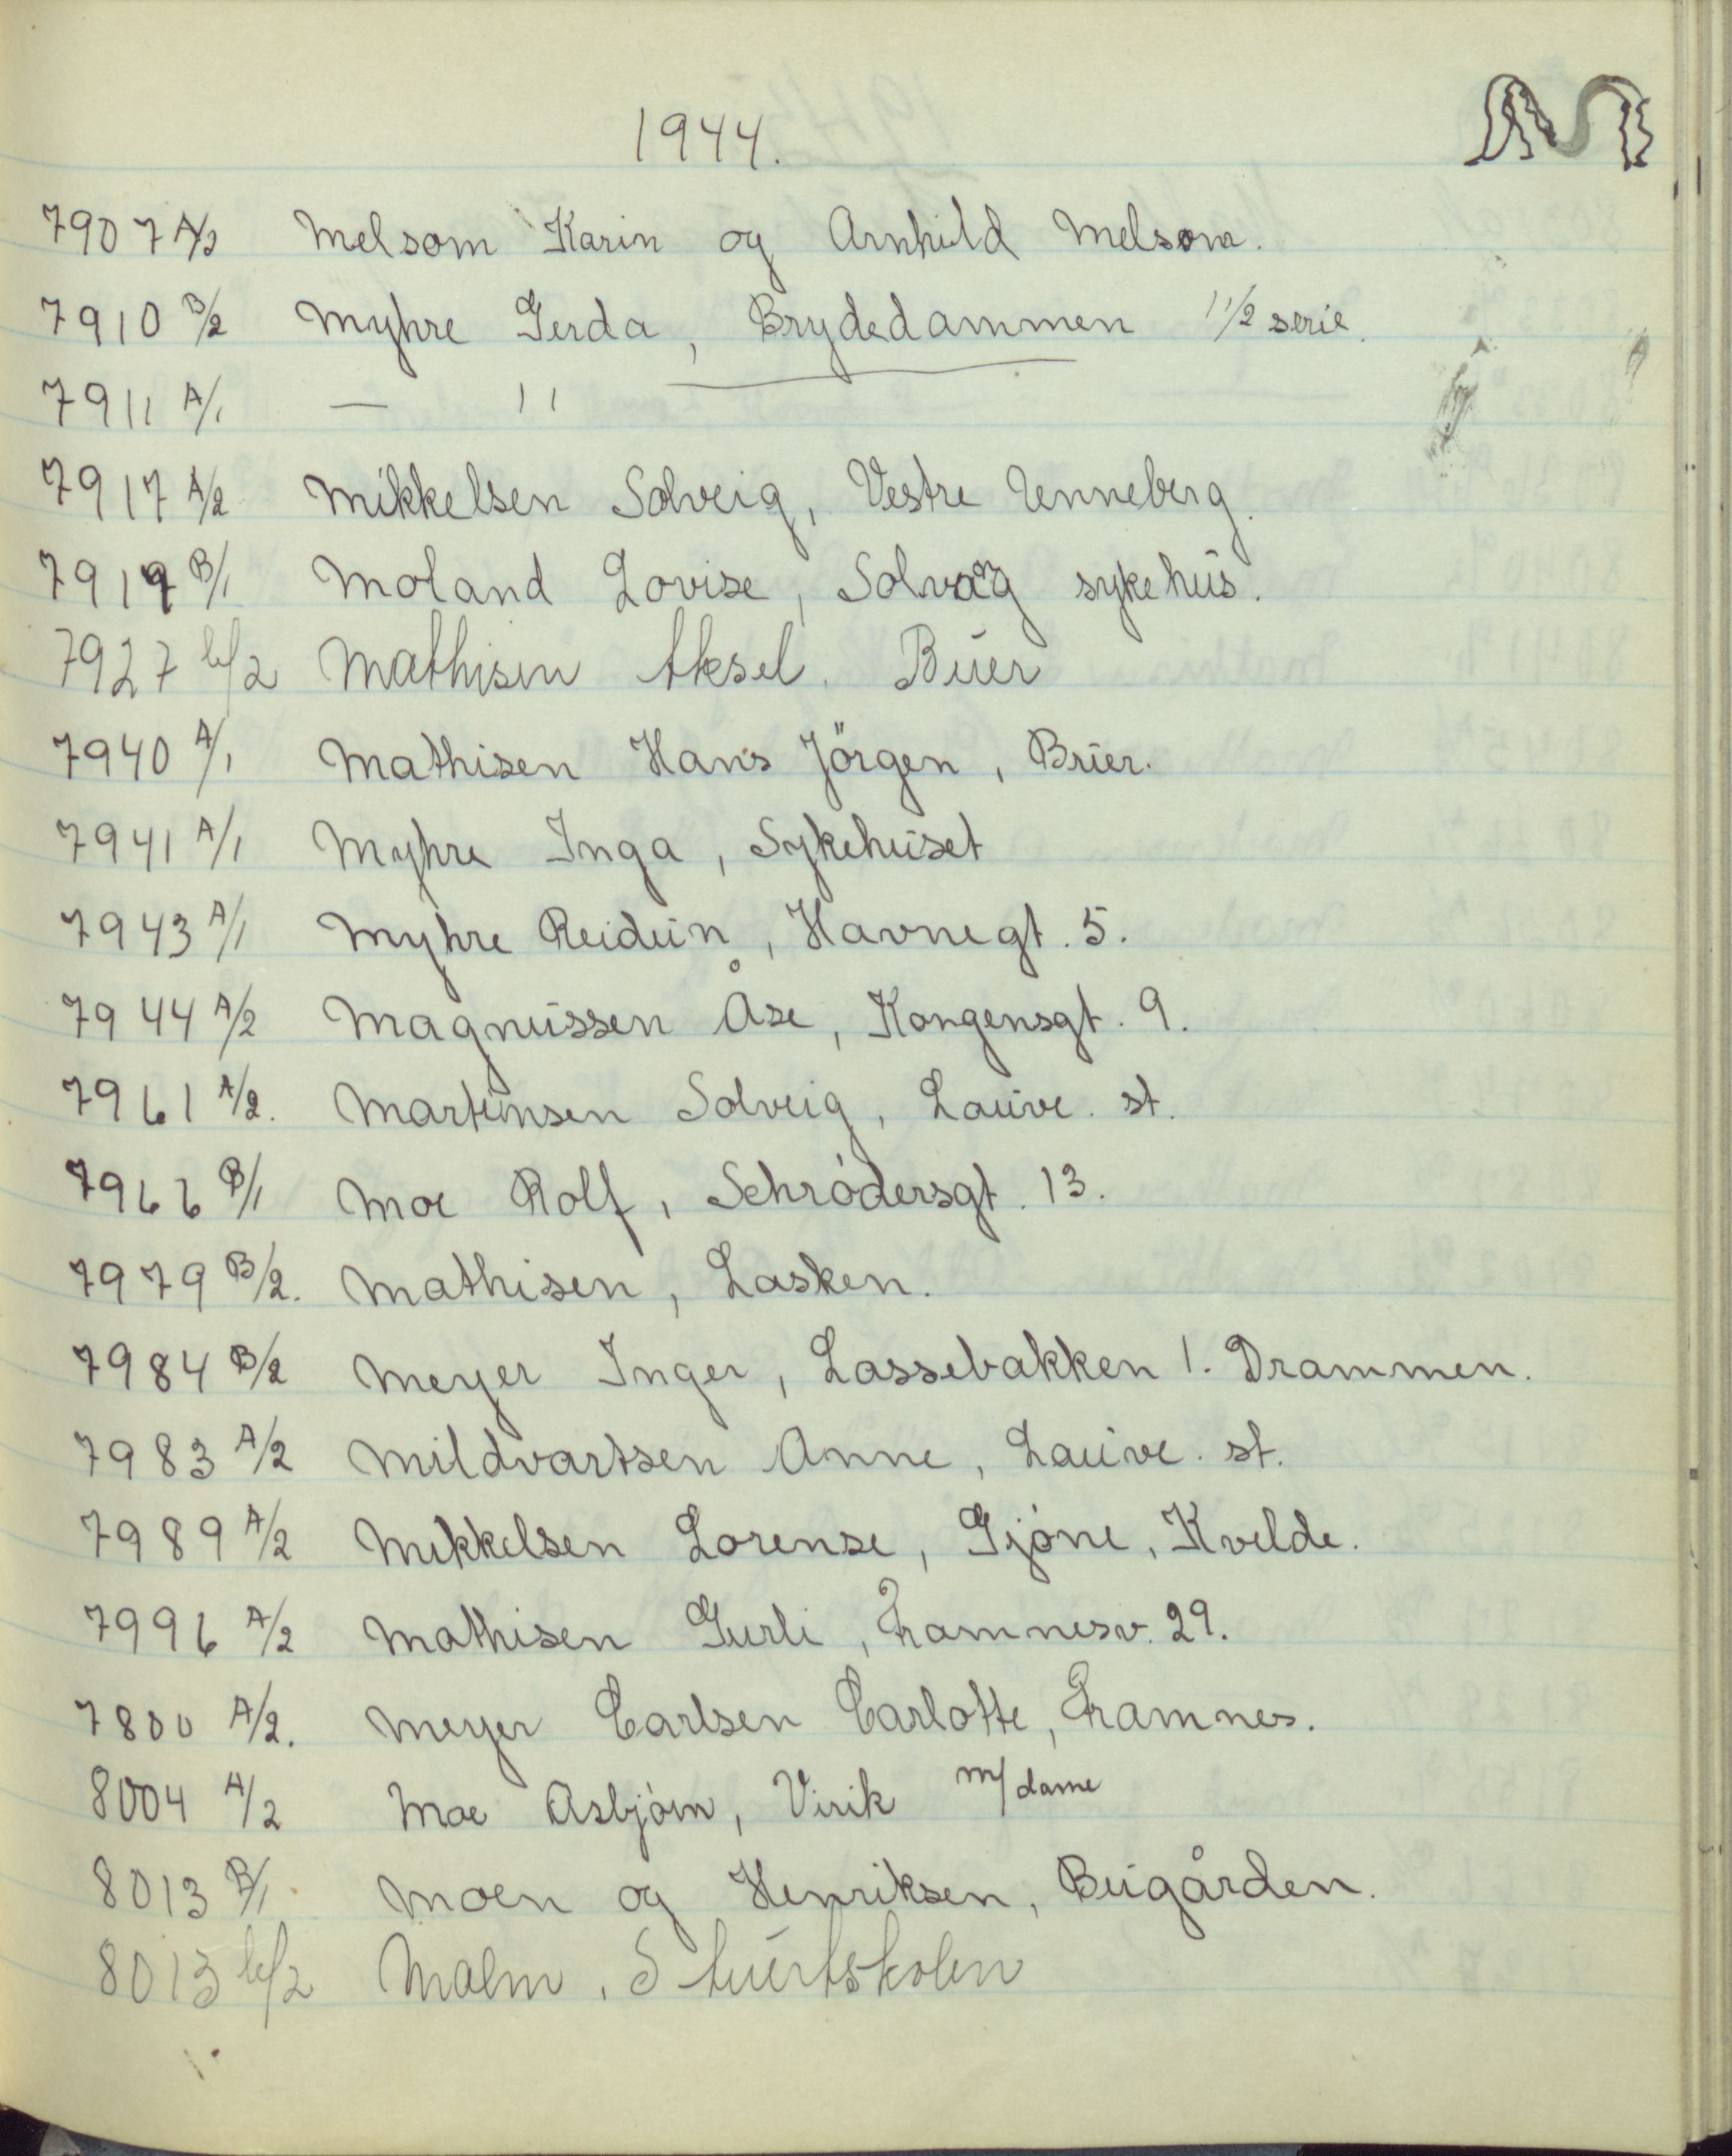 1944.
M
7907 A/2 Melsom Karin og Arnhild Melsom.
7910 B/2 Myhre Gerda, Brydedammen 1 1/2 serie.
7911 A/1 — 11
7917 A/2 Mikkelsen Solveig, Vestre Unneberg.
7919 B/1 Moland Lovise, Solvang sykehus.
7927 b/2 Mathisen Aksel. Buer
7940 A/1 Mathisen Hans Jörgen, Bruer.
7941 A/1 Myhre Inga, Sykehuset
7943 A/1 Myhre Reidun, Havnegt. 5.
7944 A/2 Magnussen Åse, Kongensgt. 9.
7961 A/2. Martinsen Solveig, Lauve. st.
7966 B/1 Moe Rolf, Schrödersgt. 13.
7979 B/2. Mathisen, Lasken.
7984 B/2 Meyer Inger, Lassebakken 1. Drammen.
7983 A/2 Mildvartsen Anne, Lauve. st.
7989 A/2 Mikkelsen Lorense, Gjóne, Kvelde.
7996 A/2 Mathisen Gurli, Framnesv. 29.
7800 A/2. Meyer Carlsen Carlotte, Framnes.
8004 A/2 Moe Asbjórn, Virik m/dame
8013 B/1. Moen og Henriksen, Bugården.
8013 b/2 Malm, Stuertskolen